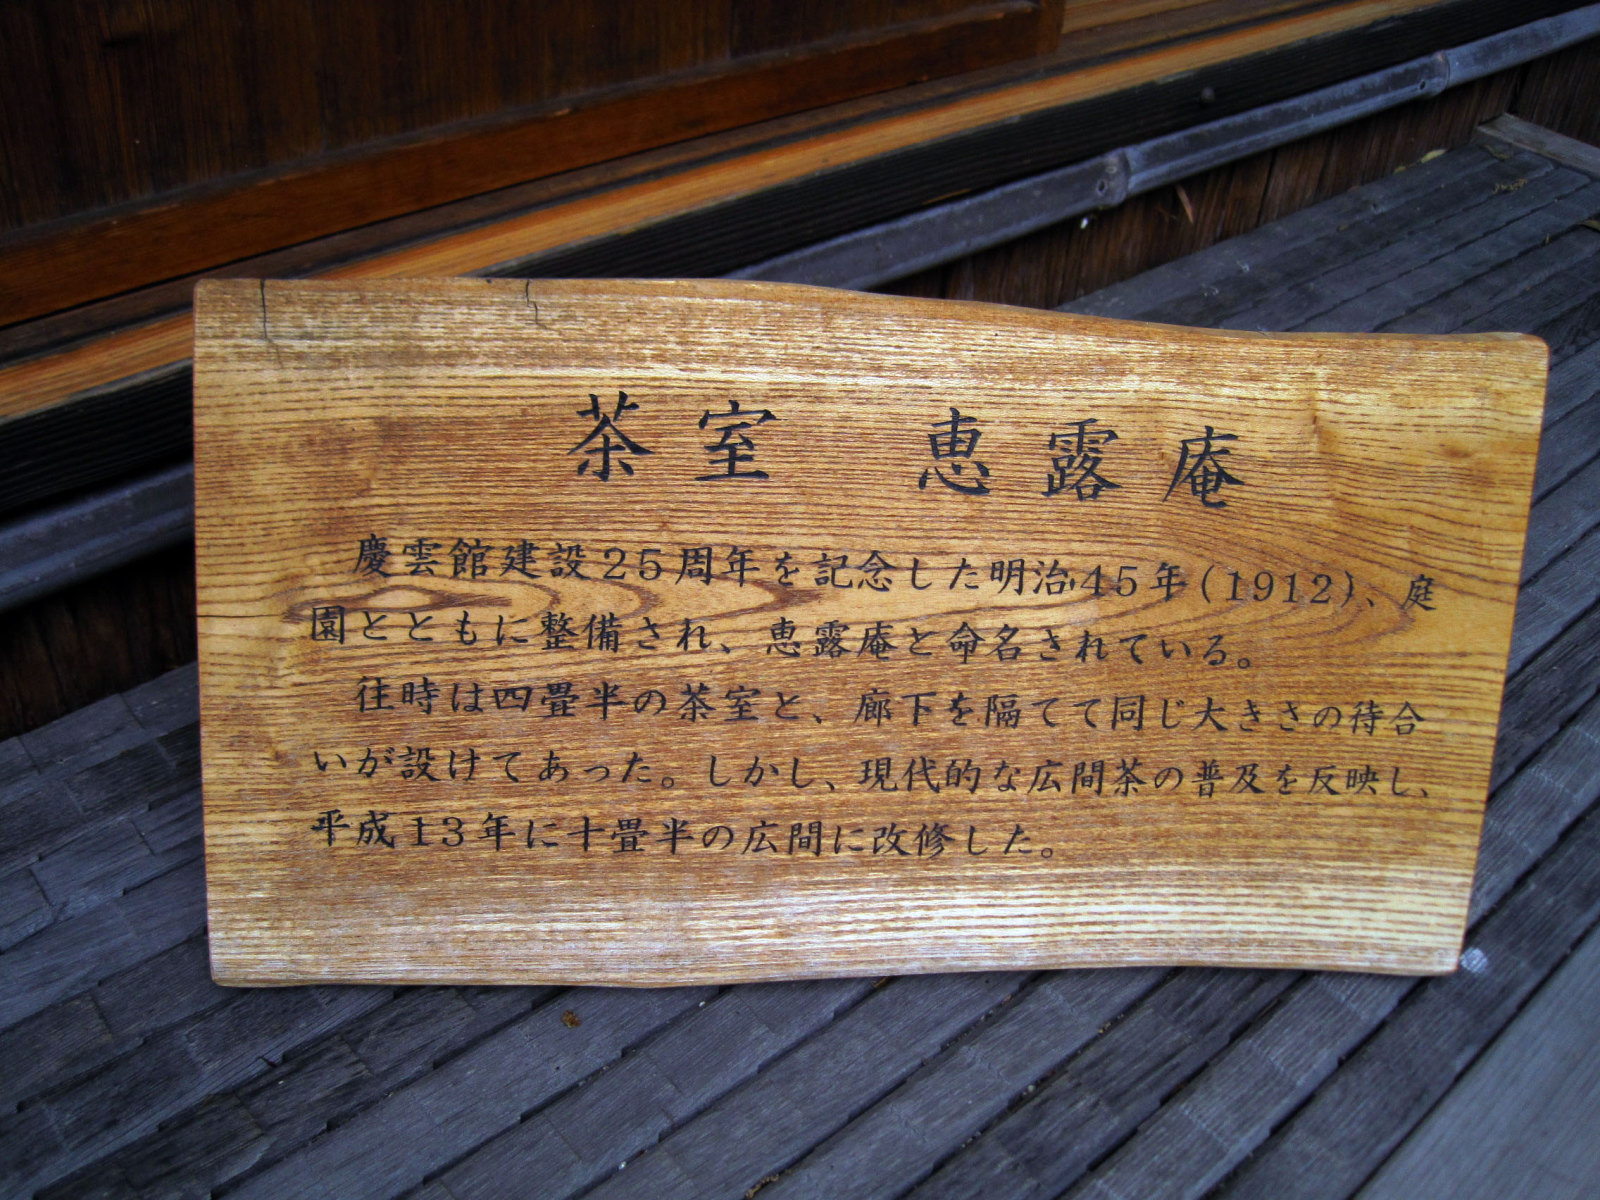 茶室　恵露庵
慶雲館建設25周年を記念した明治45年(1912)、庭
園とともに整備され、恵露庵と命名されている。
往時は四畳半の茶室と、廊下を隔てて同じ大きさの待合
いが設けてあった。しかし、現代的な広間茶の普及を反映し、
平成13年に十畳半の広間に改修した。